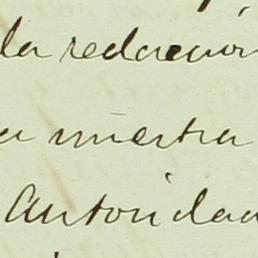 la redacción
a nuestra
Autoridad